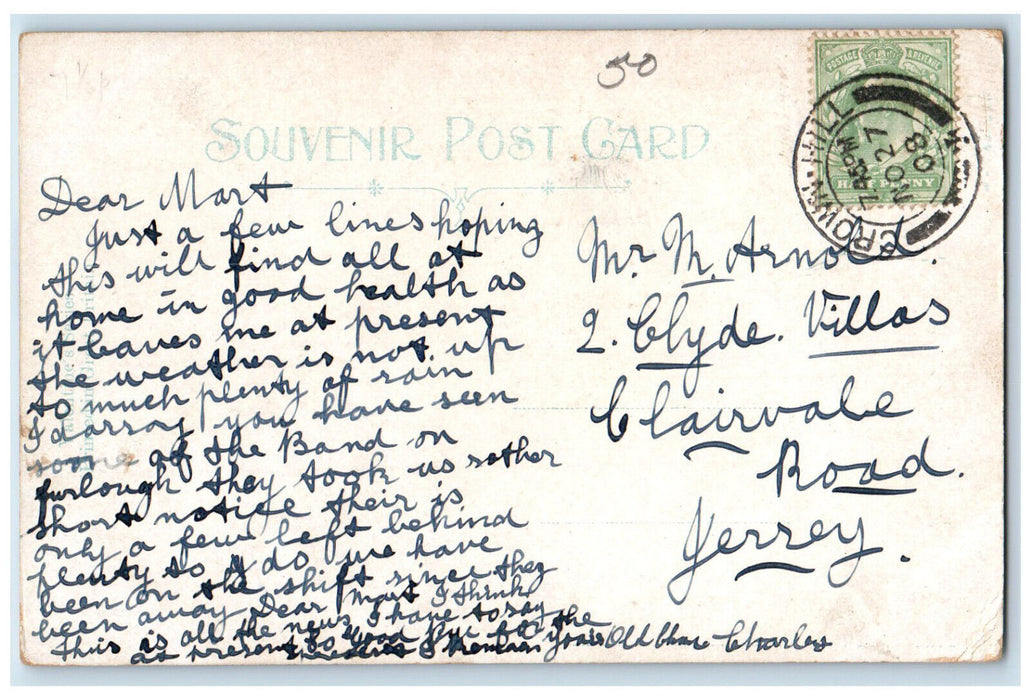 50
SOUVENIR POST CARD
POSTAGE & REVENUE
HALF PENNY
CROWN HILL
7.45PM
NO 27
08
Dear Mart
Just a few lines hoping
this will find all at
home in good health as
it leaves me at present
the weather is not up
to much plenty of rain
I darray you have seen
some of the Band on
furlough they took us rather
short notice their is
only a few left behind
plenty to do we have
been on the shift since they
been away Dear Mart I think
this is all the news I have to say
at present so Good bye for the
I Remain yours Old Chum Charles
Mr M. Arnold.
2. Clyde. Villas
Clairvale
Road.
Jersey.